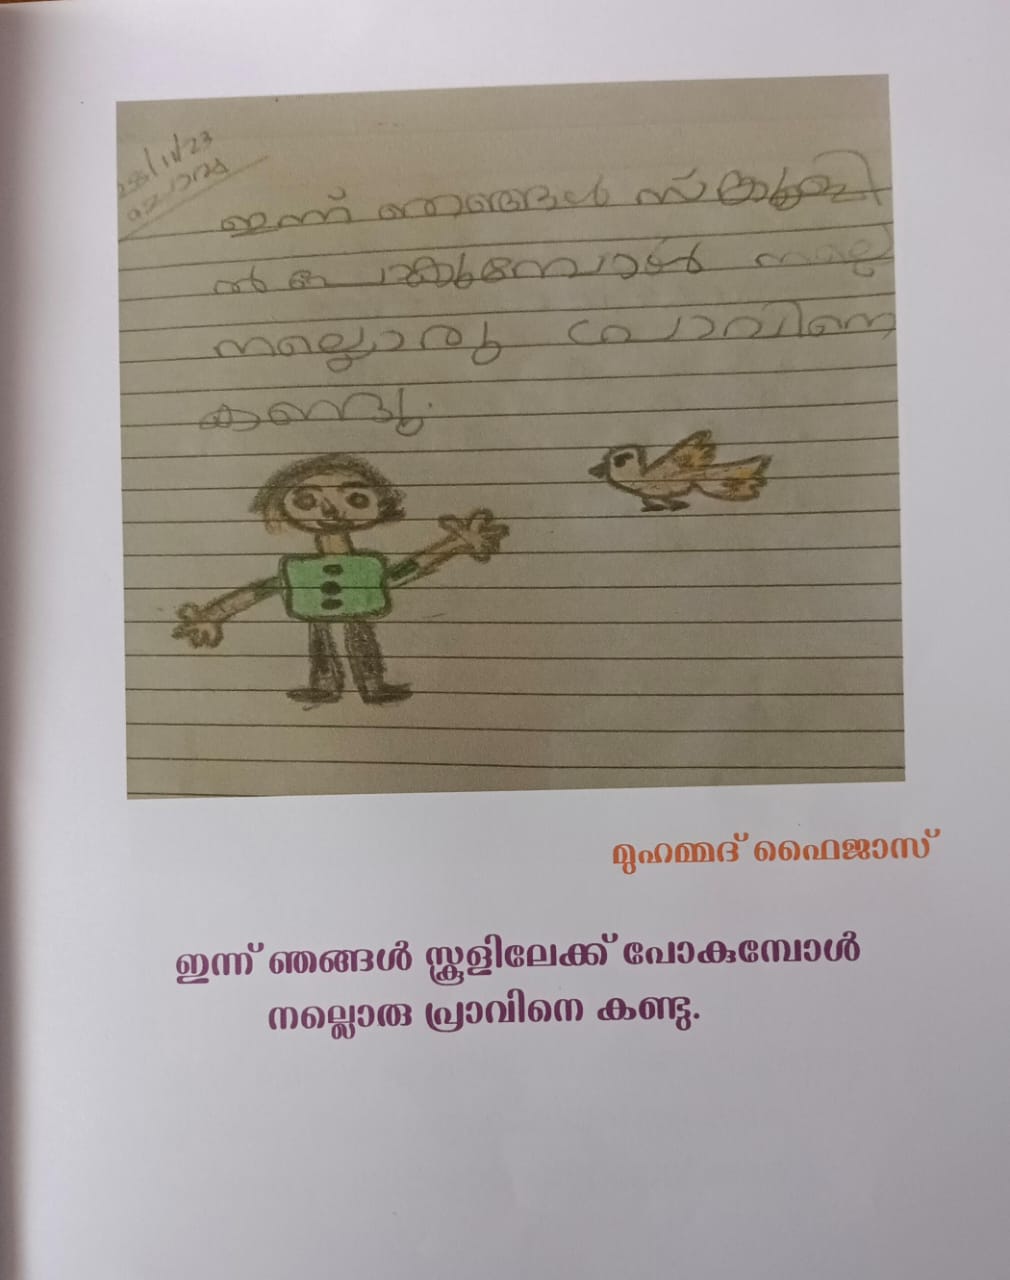 28/11/23
ഇന്ന് ഞങ്ങൾ സ്കൂളി
ൽ പോകുമ്പോൾ നല്ല
നല്ലൊരു പ്രാവിനെ
കണ്ടു.
മുഹമ്മദ് ഫൈജാസ്
ഇന്ന് ഞങ്ങൾ സ്കൂളിലേക്ക് പോകുമ്പോൾ
നല്ലൊരു പ്രാവിനെ കണ്ടു.